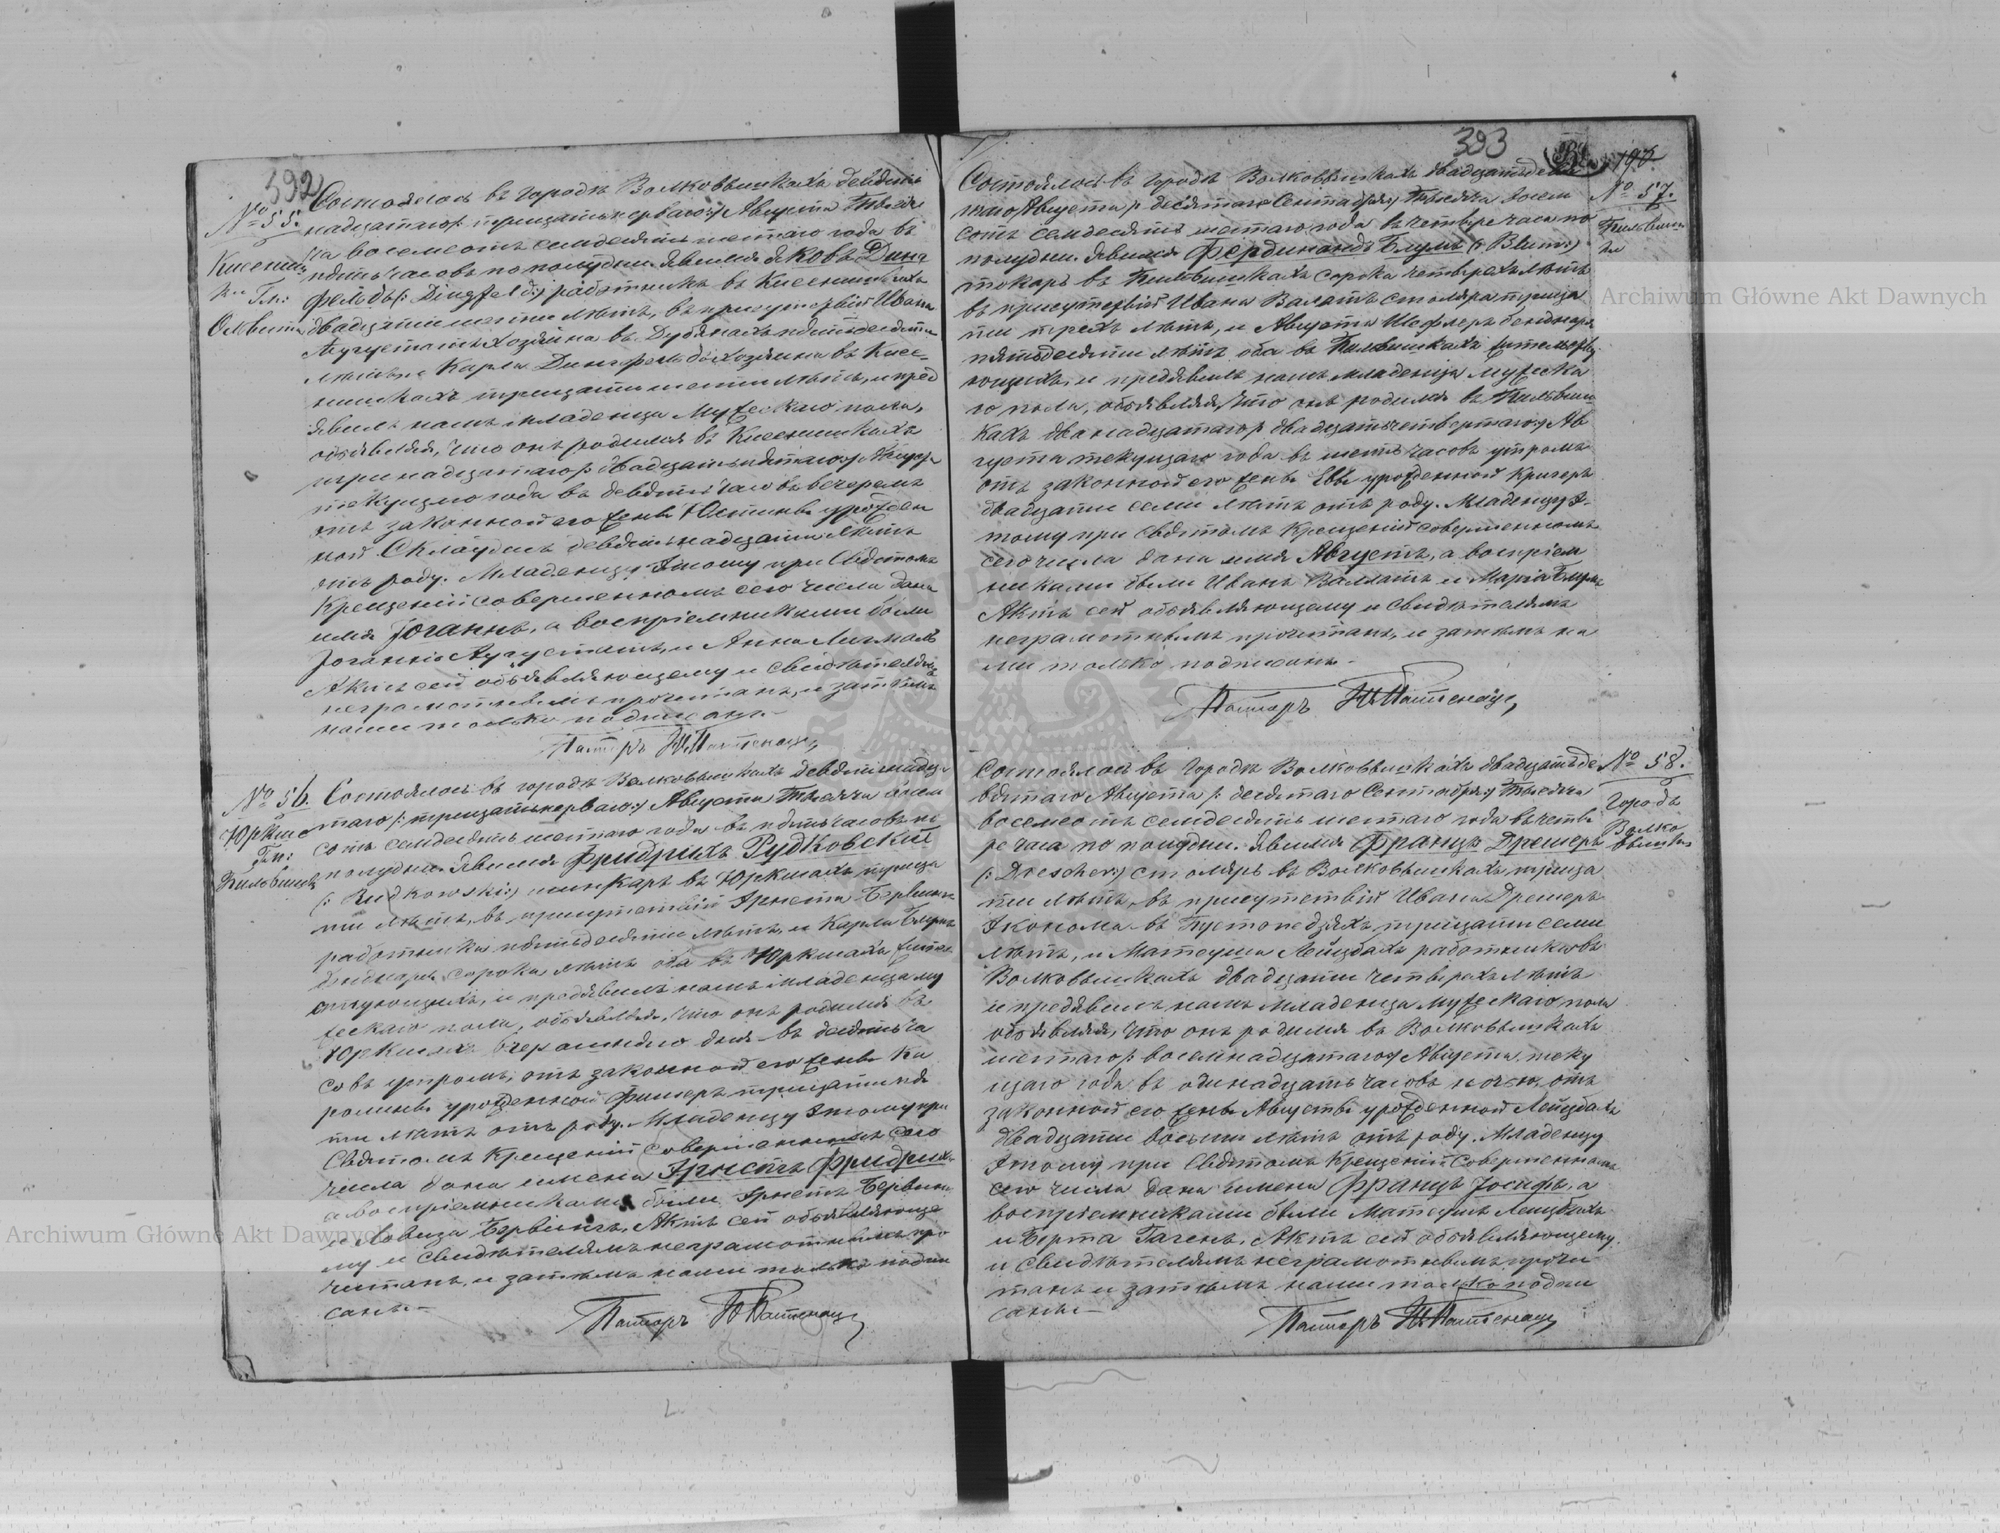 392
№ 55.
Кисениш-
ки Гм:
Олвита
Состоялось въ городѣ Волковышкахъ девят-
надцатаго /: тридцать перваго :/ Августа тысяча
восемьсотъ семдесятъ шестаго года въ
пять часовъ по полудни. Явился Яковъ Динг
фельдъ (: Dingfeld :) работникъ въ Кисенишкахъ
двадцати шести лѣтъ, въ присутствіи Ивана
Аугустатъ хозяина въ Дубянахъ пятьдесяти
лѣтъ, и Карла Дингфельда хозяина въ Кисе-
нишкахъ тридцати шести лѣтъ, и пред
явилъ намъ младенца мужескаго пола,
объявляя, что онъ родился въ Кисенишкахъ
тринадцатаго /: двадцать пятаго :/ Августа
текущаго года въ девять часовъ вечеромъ
отъ законной его жены Юстины урожден
ной Склаудисъ девятьнадцати лѣтъ
отъ роду. Младенцу этому при Святомъ
Крещеніи совершенномъ сего числа дано
имя Іоганнъ, а воспріемниками были
Іоганнъ Аугустатъ, и Анна Лигмалъ
Актъ сей объявляющему и свидѣтелямъ
неграмотнымъ прочитанъ, и затѣмъ
нами только подписанъ.
Пасторъ
№ 56.
Юркше
Гм:
Пильвишки
Состоялось въ городѣ Волковышкахъ девятнадца
таго /: тридцать перваго :/ Августа тысяча восем
сотъ семдесятъ шестаго года въ пять часовъ по
полудни. Явился Фридрихъ Рудковскій
(: Rudkowski :) шинкарь въ Юркшахъ тридца
ти лѣтъ, въ присутствіи Эрнста Бервинг
работника пятьдесяти лѣтъ, и Карла Блумъ
биднаря сорока лѣтъ оба въ Юркшахъ жител
ствующихъ, и предявилъ намъ младенца му
жескаго пола, объявляя, что онъ родился въ
Юркшахъ вчерашняго дня въ десять ча
совъ утромъ, отъ законной его жены Ка
ролины урожденной Фишеръ тридцати пя
ти лѣтъ отъ роду. Младенцу этому при
Святомъ Крещеніи совершенномъ сего
числа дано имена Эрнстъ Фридрихъ
а воспріемниками были Эрнстъ Бервинг
и Ловиза Бервингъ. Актъ сей объявляюще
му и свидѣтелямъ неграмотнымъ про
читанъ, и затѣмъ нами только подпи
санъ.—
Пасторъ
393
№ 57.
Пильвиш-
ки
Состоялось въ городѣ Волковышкахъ двадцать девя
таго Августа /: десятаго Сентября :/ тысяча восем
сотъ семдесятъ шестаго года въ четыре часа по
полудни. Явился Фердинандъ Блумъ (: Blum :)
токарь въ Пильвишкахъ сорока четырехъ лѣтъ
въ присутствіи Ивана Валатъ столяра тридца
ти трехъ лѣтъ, и Августа Шефлеръ бенднаря
пятьдесяти лѣтъ оба въ Пильвишкахъ жительству
ющихъ, и предявилъ намъ младенца мужеска
го пола, объявляя, что онъ родился въ Пильвиш
кахъ двенадцатаго /: двадцать четвертаго :/ Ав
густа текущаго года въ шесть часовъ утромъ
отъ законной его жены Евы урожденной Кригеръ
двадцати семи лѣтъ отъ роду. Младенцу э-
тому при Святомъ Крещеніи совершенномъ
сего числа дано имя Августъ, а воспріем
никами были Иванъ Валлатъ и Марія Блумъ
Актъ сей объявляющему и свидѣтелямъ
неграмотнымъ прочитанъ, и затѣмъ на
ми только подписанъ.—
Пасторъ
№ 58.
Городъ
Волко
вышки
Состоялось въ городѣ Волковышкахъ двадцать де
вятаго Августа /: десятаго Сентября :/ тысяча
восемьсотъ семдесятъ шестаго года въ четы
ре часа по полудни. Явился Францъ Дрешеръ
(: Drescher :) столяръ въ Волковышкахъ тридца
ти лѣтъ, въ присутствіи Ивана Дрешеръ
эконома въ Пустопедзяхъ тридцати семи
лѣтъ, и Матеуша Лейцбахъ работника въ
Волковышкахъ двадцати четырехъ лѣтъ
и предявилъ намъ младенца мужескаго пола
объявляя, что онъ родился въ Волковышкахъ
шестаго /: восемнадцатаго :/ Августа теку
щаго года въ одинадцать часовъ ночи, отъ
законной его жены Августы урожденной Лейцбахъ
двадцати восьми лѣтъ отъ роду. Младенцу
этому при Святомъ Крещеніи совершенномъ
сего числа дано имена Францъ Іосифъ, а
воспріемниками были Матеушъ Лейцбахъ
и Берта Гагенъ. Актъ сей объявляющему
и свидѣтелямъ неграмотнымъ прочи
танъ и затѣмъ нами только подпи
санъ.—
Пасторъ
Archiwum Główne Akt Dawnych
Archiwum Główne Akt Dawnych